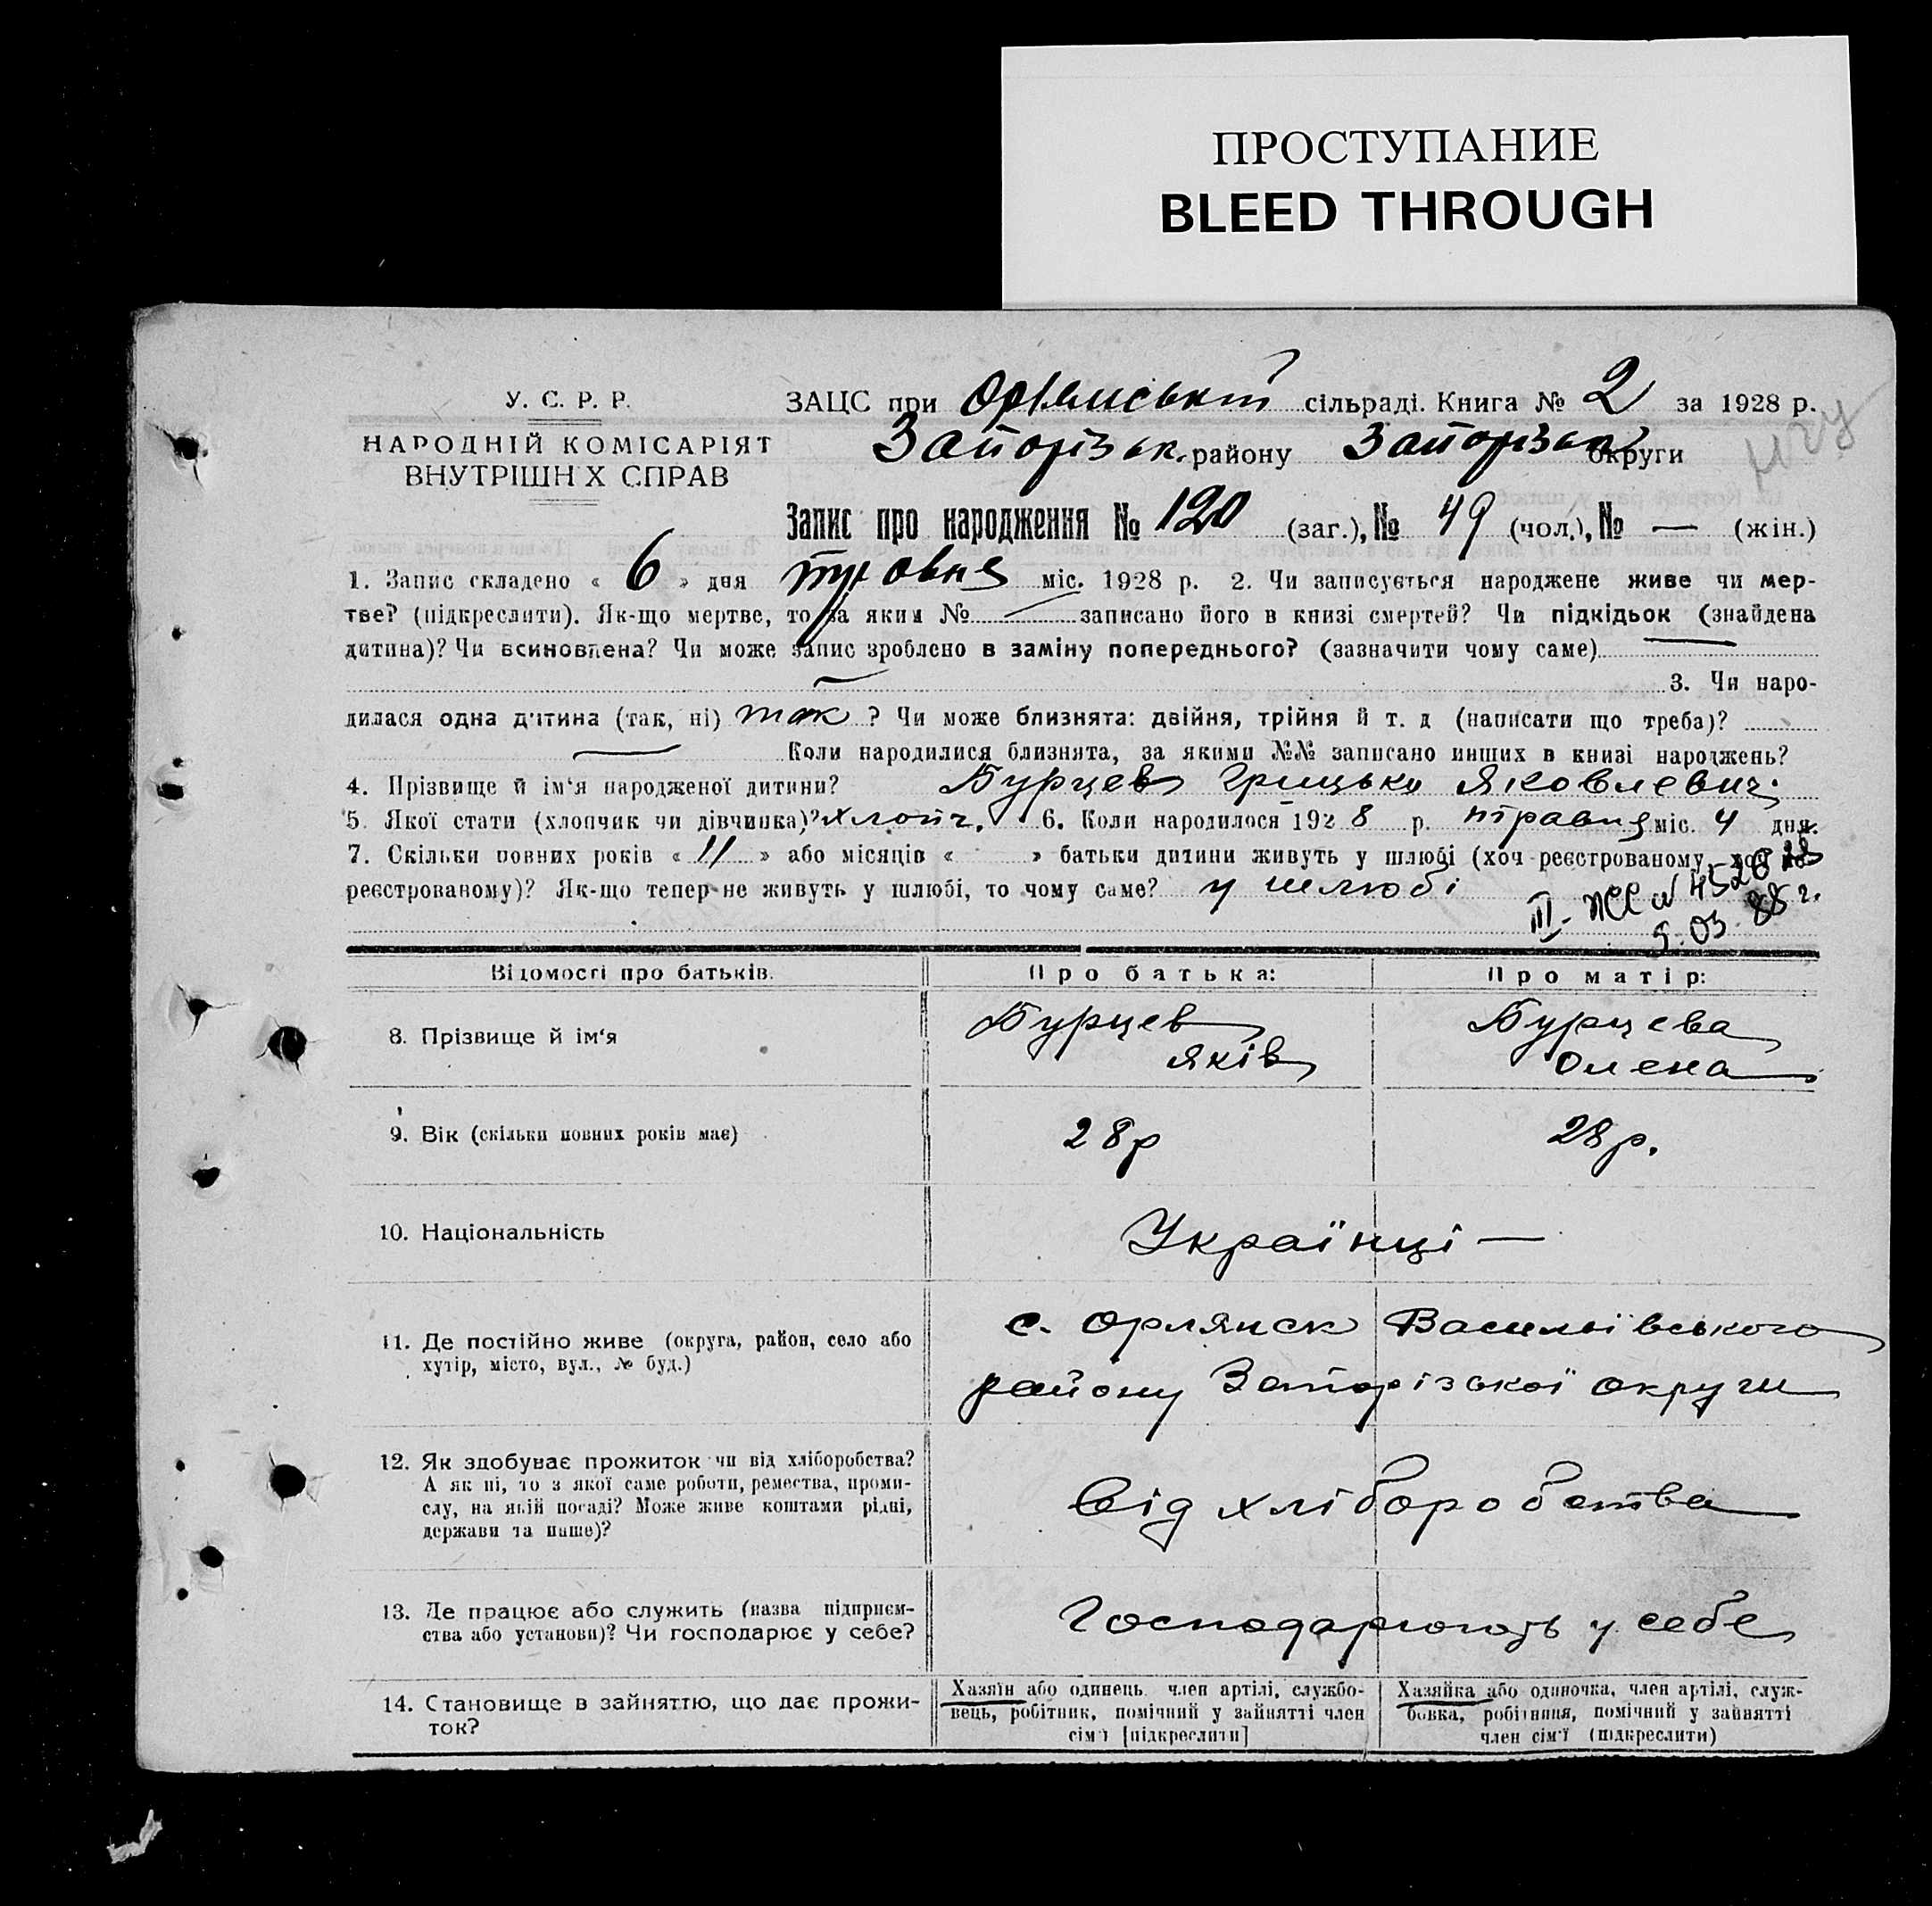 ПРОСТУПАНИЕ
BLEED THROUGH
У. С. Р. Р.
НАРОДНІЙ КОМІСАРІЯТ
ВНУТРІШН Х СПРАВ
ЗАЦС при сільраді. Книга № 2 за 1928 р.
Запорізьк. району Запорізьк округи
Запис про народження № 120 (заг.), № 49 (чол.), № — (жін.)
1. Запис складено « 6 » дня травня міс. 1928 р. 2. Чи записується народжене живе чи мер-
тве? (підкреслити). Як-що мертве, то за яким № — записано його в книзі смертей? Чи підкідьок (знайдена
дитина)? Чи всиновлена? Чи може запис зроблено в заміну попереднього? (зазначити чому саме) —
— 3. Чи наро-
дилася одна дитина (так, ні) так ? Чи може близнята: двійня, трійня й т. д (написати що треба)?
— Коли народилися близнята, за якими №№ записано инших в книзі народжень?
4. Прізвище й ім‘я народженої дитини? Бурцев Грицько Яковлевич
5. Якої стати (хлопчик чи дівчинка)? хлопч. 6. Коли народилося 1928 р. травня міс. 4 дня.
7. Скільки повних років « 11 » або місяців « » батьки дитини живуть у шлюбі (хоч реєстрованому, хоч не
реєстрованому)? Як-що тепер не живуть у шлюбі, то чому саме? у шлюбі
9.03.88 г.
Відомості про батьків. Про батька: Про матір:
8. Прізвище й ім‘я Бурцев Яків Бурцева Олена
9. Вік (скільки повних років має) 28 р 28 р.
10. Національність Українці —
11. Де постійно живе (округа, район, село або
хутір, місто, вул., № буд.)
с. Орлянск Васильївського
району Запорізької округи
12. Як здобуває прожиток чи від хліборобства?
А як ні, то з якої саме роботи, ремества, проми-
слу, на якій посаді? Може живе коштами рідні,
держави та инше)?
Від хліборобства
13. Де працює або служить (назва підприєм-
ства або установи)? Чи господарює у себе?
Господарюють у себе
14. Становище в зайняттю, що дає прожи-
ток?
Хазяїн або одинець член артілі, службо-
вець, робітник, помічний у зайнятті член
сім‘ї [підкреслити]
Хазяйка або одиночка, член артілі, служ-
бовка, робітниця, помічний у зайнятті
член сім‘ї (підкреслити)